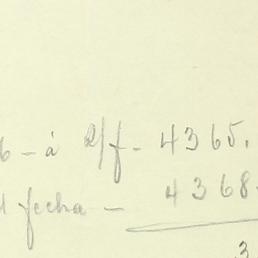 6 - á 2/f - 4365.
fecha - 4368
3